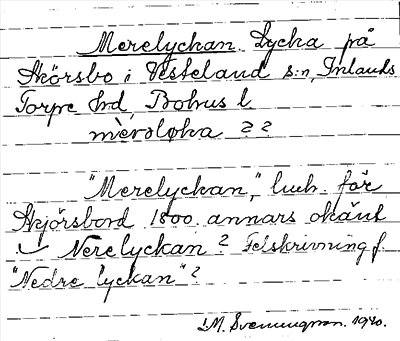 Merelyckan. Lycka på
Skörsbo i Vesteland s:n, Inlands
Torpe hd, Bohus l
mèrəløka ? ?
"Merelyckan," luch. för
Skjörsbord 1800. annars okänt
Nerelyckan? Felskrivning f.
"Nedre lyckan"?
M. Svenningson. 1940.